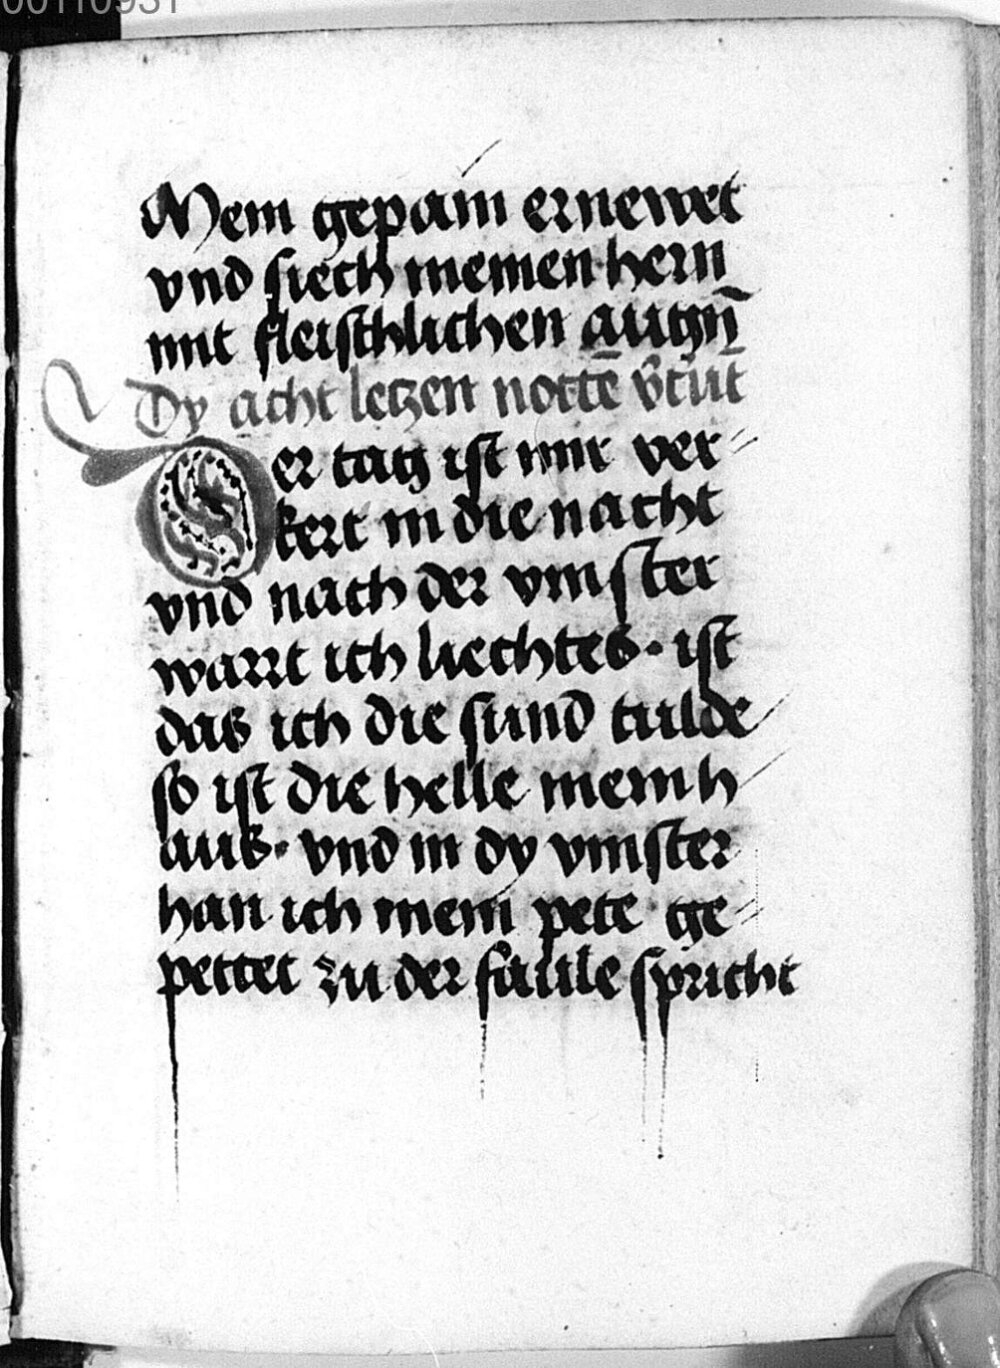 00110931
Mein gepain ernewet
vnd siech meinen hern
mit fleischlichen augñ
Dy acht letzen nottē v̄tūt
Der tag ist mir ver⸗
kert in die nacht
vnd nach der vinster
warrt ich liechtes · ist
das ich die sund tulde
so ist die helle mein h
aus · vnd in dy vinster
han ich mein pete ge⸗
pettet zu der faule spricht